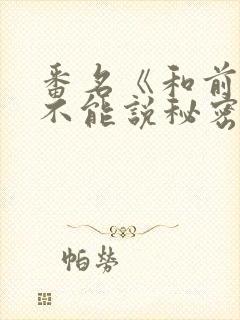 番名《和前
不能說秘密
帕勞